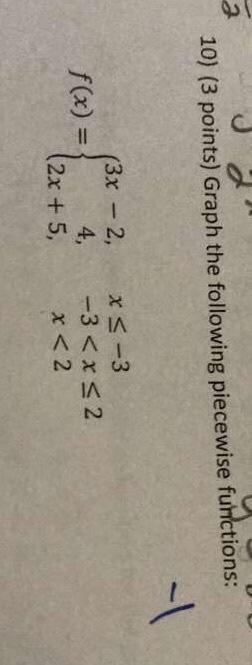 10) (3 points) Graph the following piecewise functions:
f(x) = {3x − 2, x ≤ −3
4, −3 < x ≤ 2
2x + 5, x < 2
−1